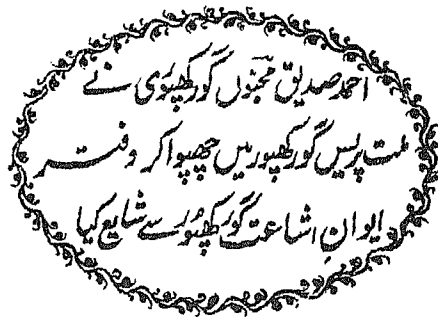 احمد صدیق مجنوں گورکھپوری نے
ملت پریس گورکھپور میں چھپوا کر دفتر
ایوانِ اشاعت گورکھپور سے شایع کیا